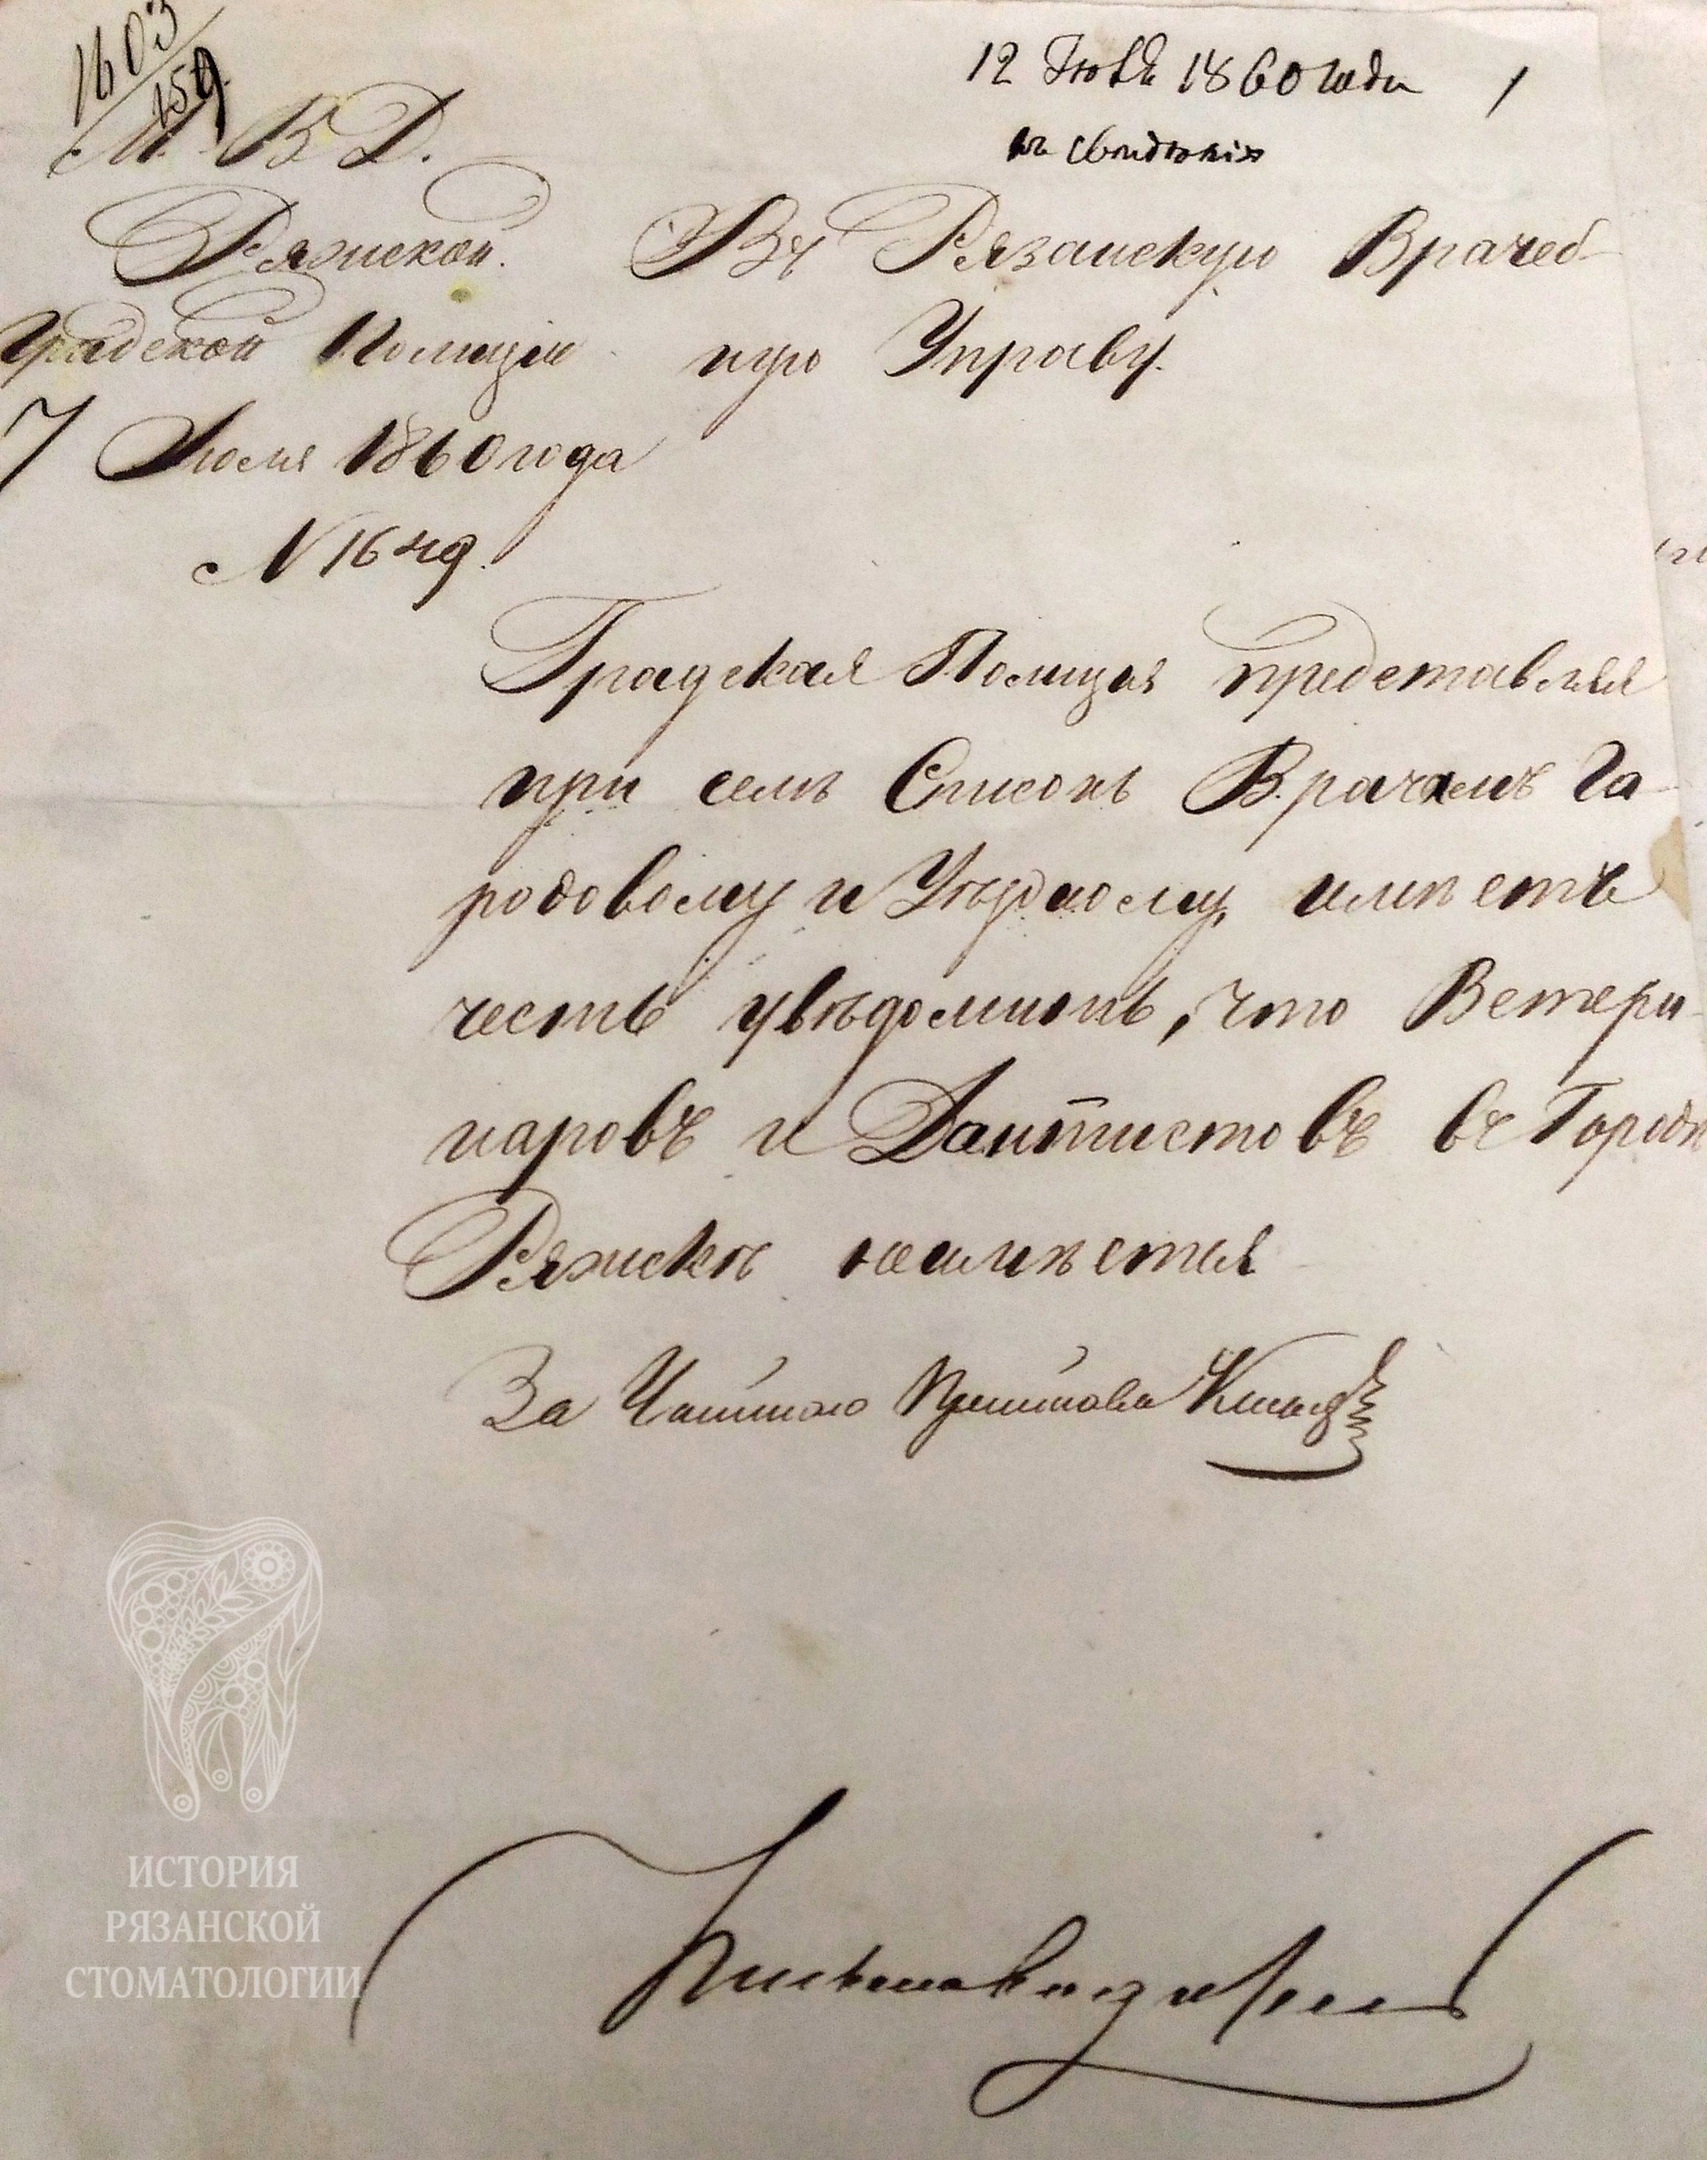 1603
159
12 Июля 1860 года 1
къ свѣдѣнію
М. В. Д.
Ряжской.
Градской Полиціи
7 Июля 1860 года
N 1649.
Въ Рязанскую Врачеб-
ную Управу.
Градская Полиция представляя
при семъ Списокъ Врачамъ Га-
родовому и Уѣздному, имѣетъ
честь увѣдомить, что Ветери-
наровъ и Дантистовъ въ Городѣ
Ряжскѣ неимѣется
За
Письмоводитель
ИСТОРИЯ
РЯЗАНСКОЙ
СТОМАТОЛОГИИ